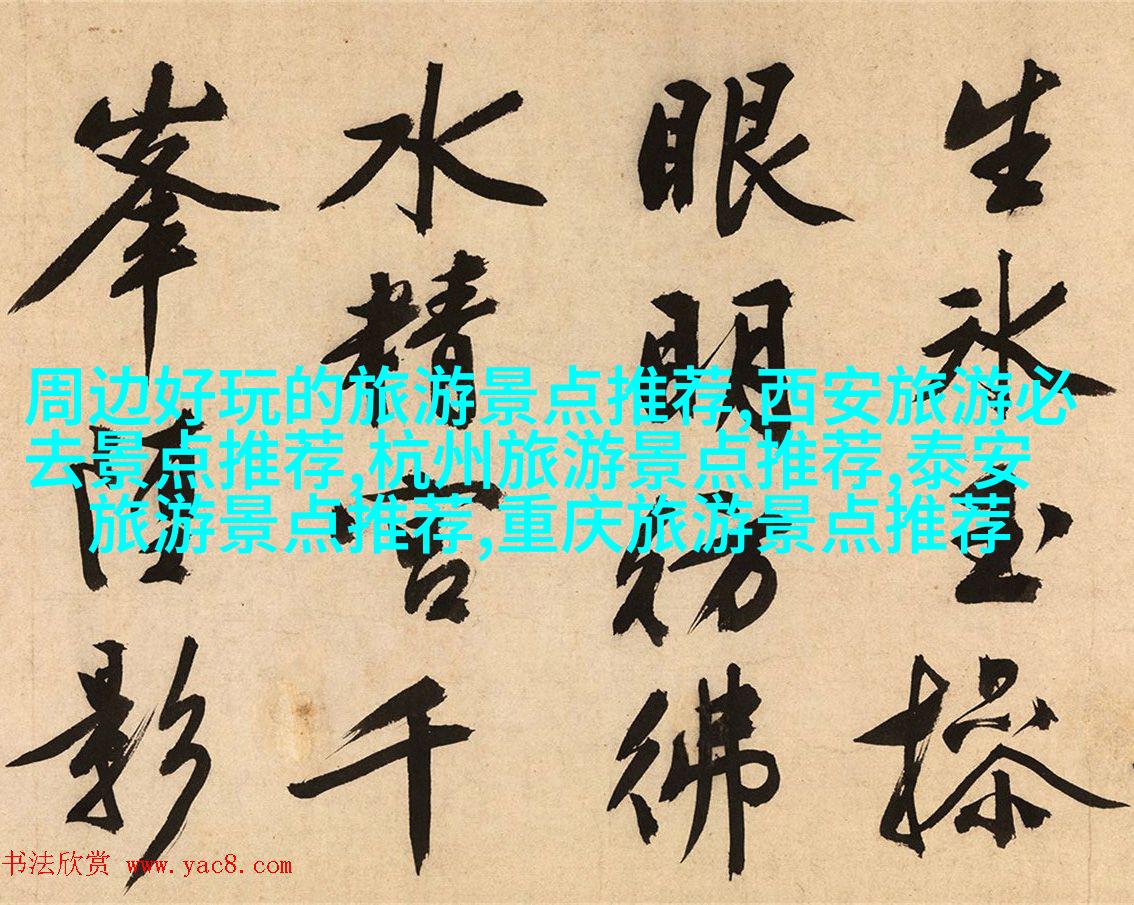 生冰玉操
眼明彷彿
水精宫千
峯影
周边好玩的旅游景点推荐,西安旅游必
去景点推荐,杭州旅游景点推荐,泰安
旅游景点推荐,重庆旅游景点推荐
书法欣赏 www.yac8.com